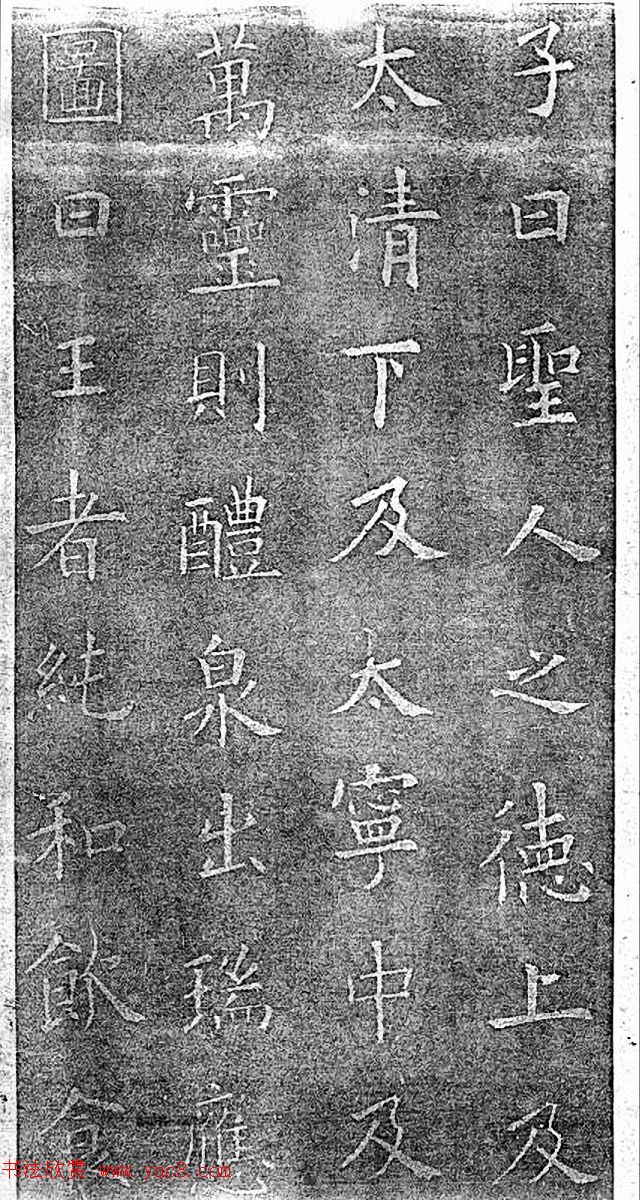 子曰聖人之德上及
太清下及太寧中及
萬靈則醴泉出瑞應
圖曰王者純和飲食
书法欣赏 www.yac8.com